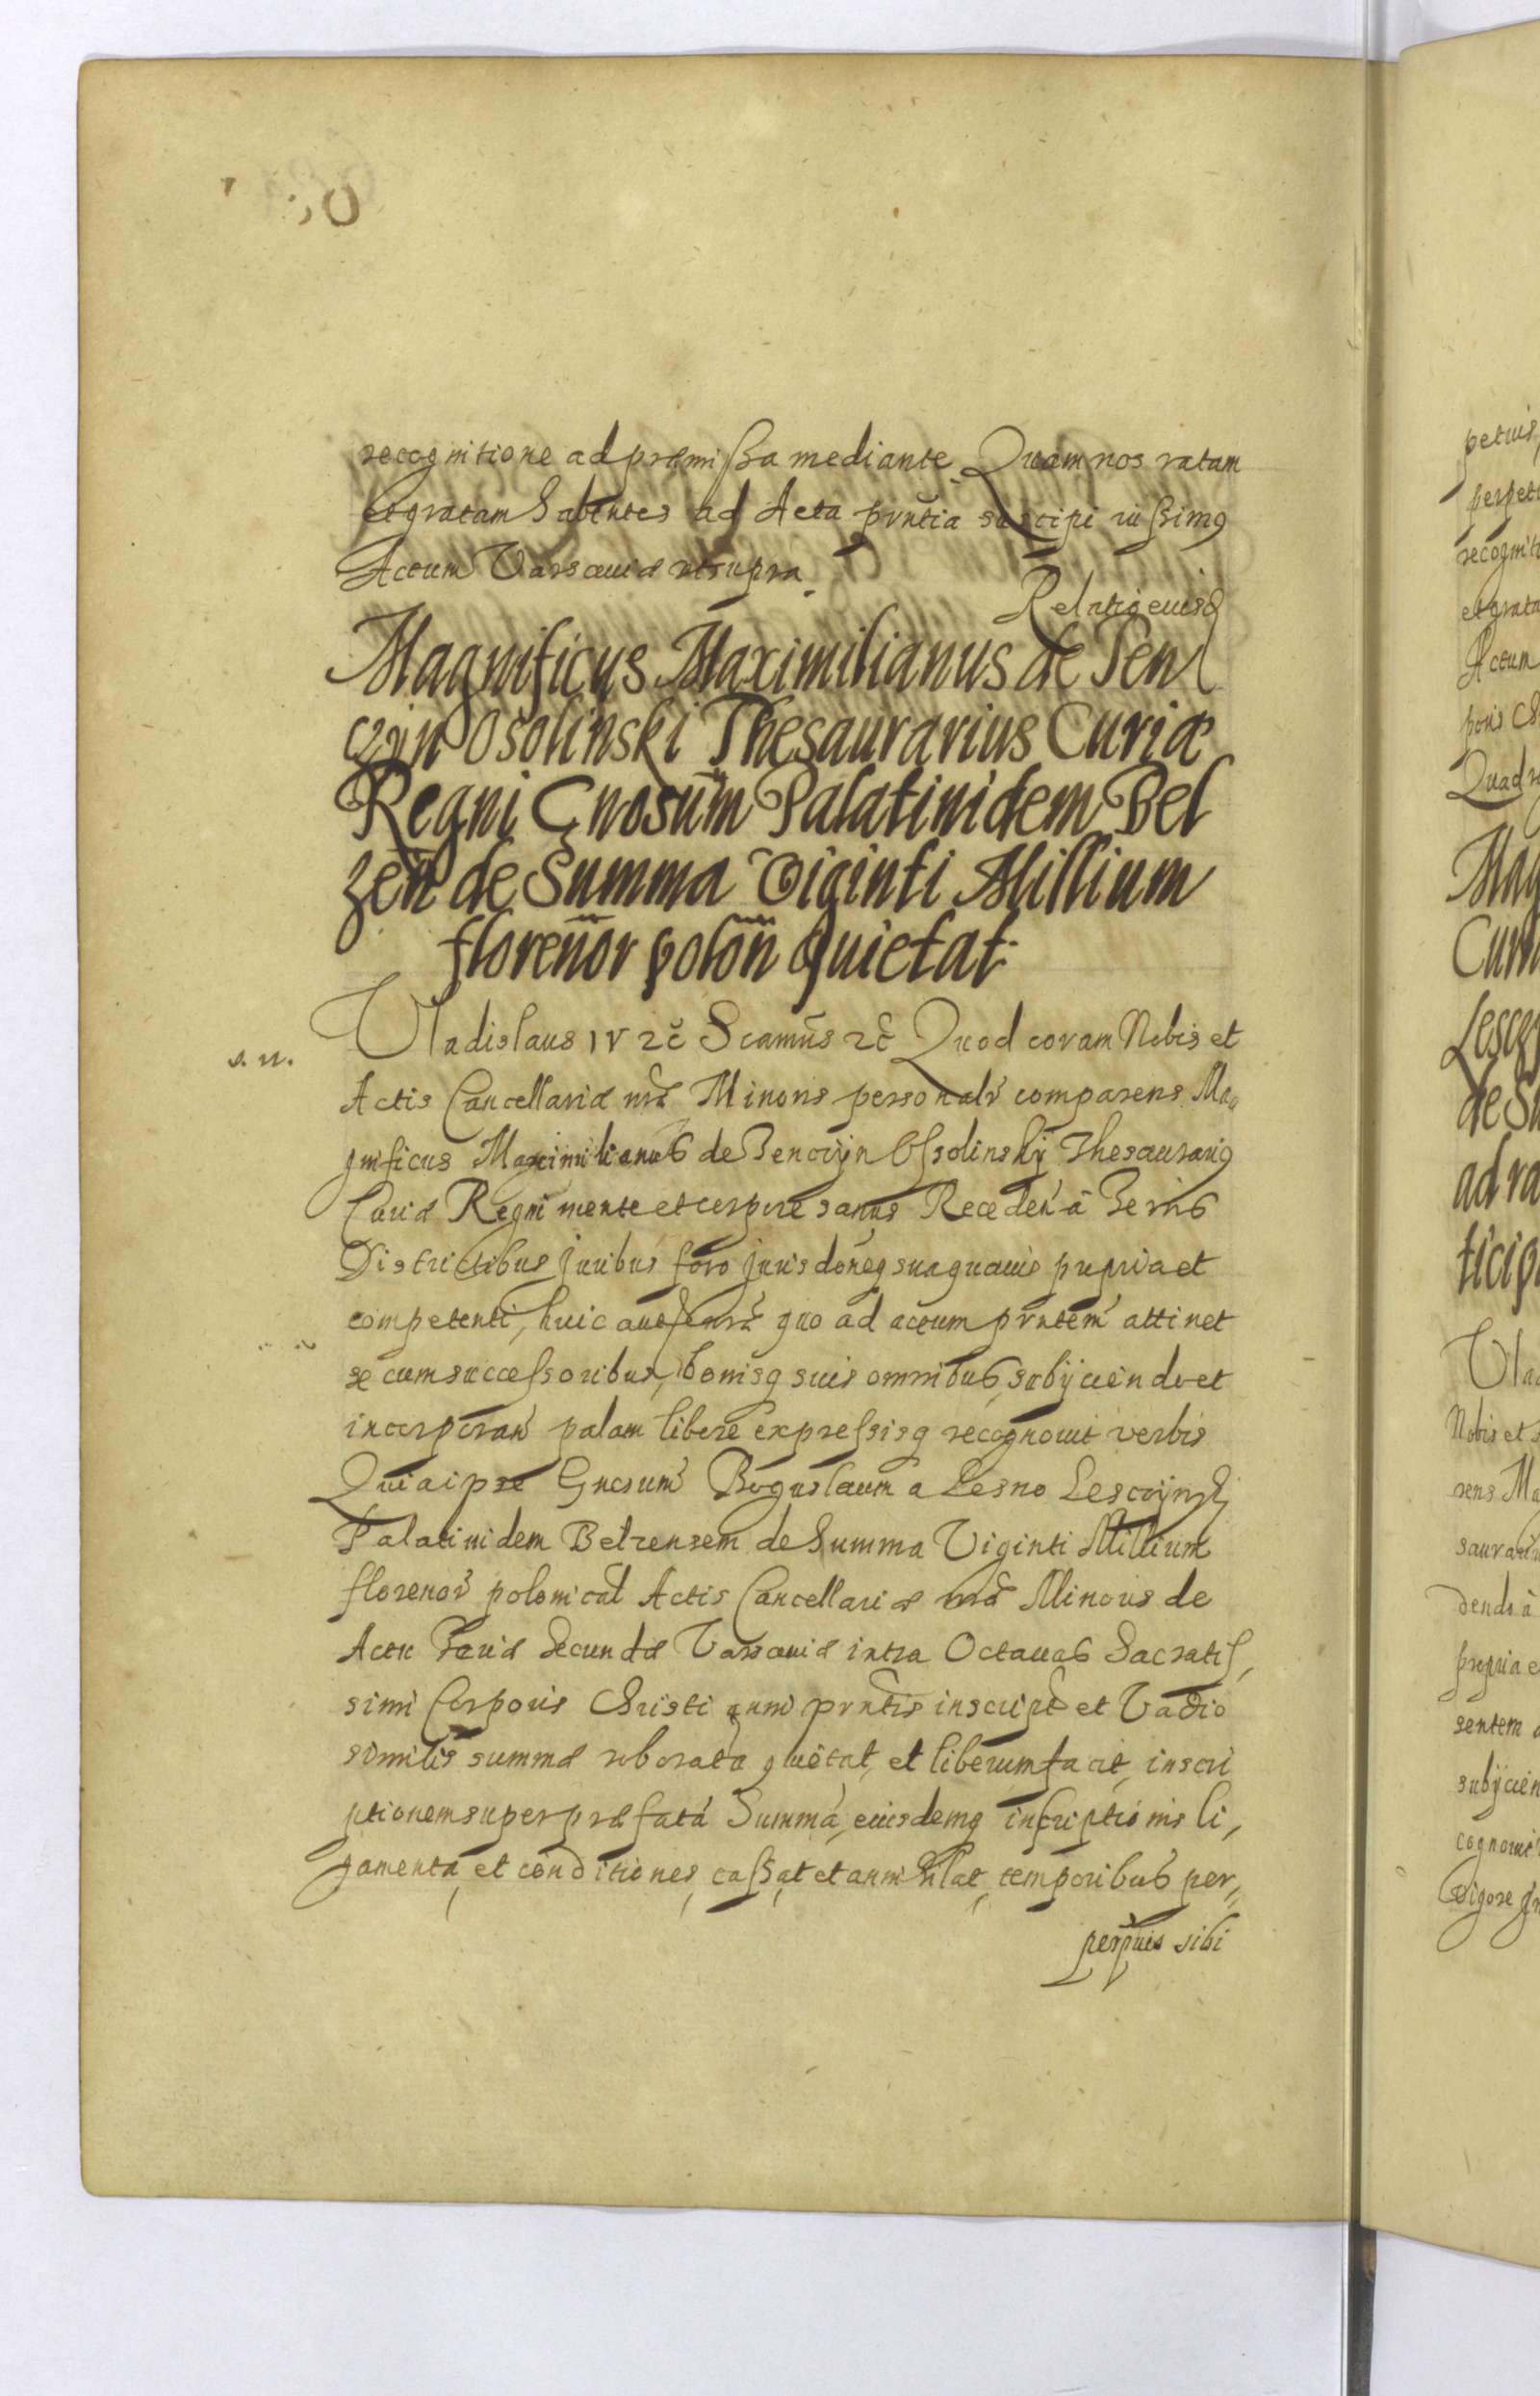 recognitione ad præmissa mediante Quam nos ratam
et gratam habentes ad Acta prntia suscipi iussimq
Actum Varsauiæ ut supra.
Relatio eiusd
Magnificus Maximilianus de Ten
czin Osolinski Thesaurarius Curiæ
Regni Gnosum Palatinidem Bel
zen de Summa Viginti Millium
florenor polon Quietat
s. n.
Vladislaus IV 2c Scamus 2c Quod coram Nobis et
Actis Cancellariæ nræ Minoris personalr comparens Ma
gnificus Maximilianus de Tenczyn Ossolinsky Thesaurariq
Curiæ Regni mente et corpore sanus Receden à Terris
Districtibus juribus foro jurisdoneq sua quauis propria et
competenti, huic aut quo ad actum prntem attinet
se cum successoribus, bonisq suis omnibus subijciendo et
incorporan palam libere expressisq recognouit verbis
Quia ipse Gnosum Boguslaum a Lesno Lesczynsky
Palatinidem Belzensem de Summa Viginti Millium
florenor polonical Actis Cancellariæ nræ Minoris de
Actu Feria Secunda Varsauiæ intra Octauas Sacratis,
simi Corporis Christi anni prntis inscript et Vadio
similis summæ roborata quietat, et liberum facit, inscri
ptionem super præfatá Summá, eiusdemq inscriptionis li,
gamenta, et conditiones, cassat et annihilat temporibus per,,
perpuis sibi